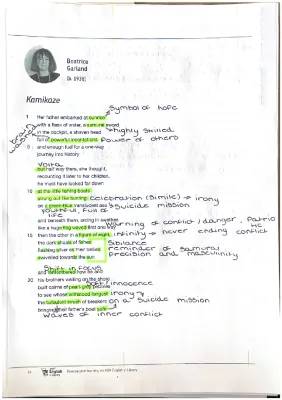 Beatrice
Garland
(b 1938)
Kamikaze
symbol of hope
1 Her father embarked at sunrise
with a flask of water, a samurai sword
in the cockpit, a shaven head
highly skilled
full of powerful incantations
Power of others
5 and enough fuel for a one-way
journey into history
Volta
but half way there, she thought,
recounting it later to her children,
he must have looked far down
10 at the little fishing boats
strung out like bunting
celebration (simile) → irony
on a green-blue translucent sea
suicide mission
youthful, full of
life
and beneath them, arcing in swathes
like a huge flag waved first one way
warning of conflict / danger, Patrio
tic
15 then the other in a figure of eight,
infinity → never ending conflict
the dark shoals of fishes
Sibilance
flashing silver as their bellies
reminder of samurai
swivelled towards the sun
precision and masculinity
Shift in focus
and remembered how he and
20 his brothers waiting on the shore
built cairns of pearl-grey pebbles
innocence
to see whose withstood longest
irony
the turbulent inrush of breakers
on a suicide mission
bringing their father's boat safe
waves of inner conflict